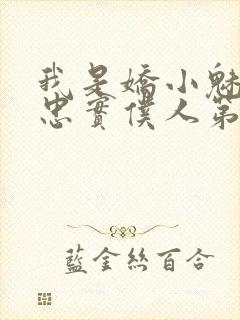 我是嬌小魅
忠實僕人第
藍金絲百合